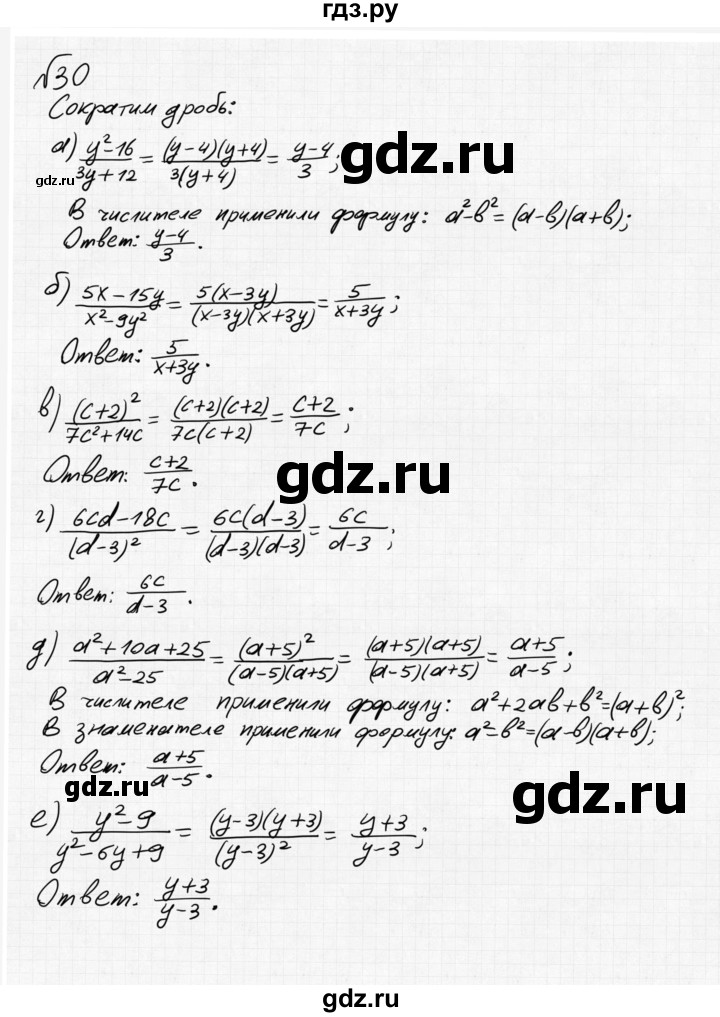 гдз.ру
№30
Сократим дробь:
а) (y²-16)/(3y+12) = ((y-4)(y+4))/(3(y+4)) = (y-4)/3;
gdz.ru
gdz.ru
В числителе применили формулу: a²-b²=(a-b)(a+b);
Ответ: (y-4)/3.
б) (5x-15y)/(x²-9y²) = (5(x-3y))/((x-3y)(x+3y)) = 5/(x+3y);
Ответ: 5/(x+3y).
в) (c+2)²/(7c²+14c) = ((c+2)(c+2))/(7c(c+2)) = (c+2)/(7c);
Ответ: (c+2)/(7c).
gdz.ru
г) (6cd-18c)/(d-3)² = (6c(d-3))/((d-3)(d-3)) = 6c/(d-3);
Ответ: 6c/(d-3).
д) (a²+10a+25)/(a²-25) = (a+5)²/((a-5)(a+5)) = ((a+5)(a+5))/((a-5)(a+5)) = (a+5)/(a-5);
В числителе применили формулу: a²+2ab+b²=(a+b)²;
В знаменателе применили формулу: a²-b²=(a-b)(a+b);
Ответ: (a+5)/(a-5).
gdz.ru
gdz.ru
е) (y²-9)/(y²-6y+9) = ((y-3)(y+3))/(y-3)² = (y+3)/(y-3);
Ответ: (y+3)/(y-3).
gdz.ru